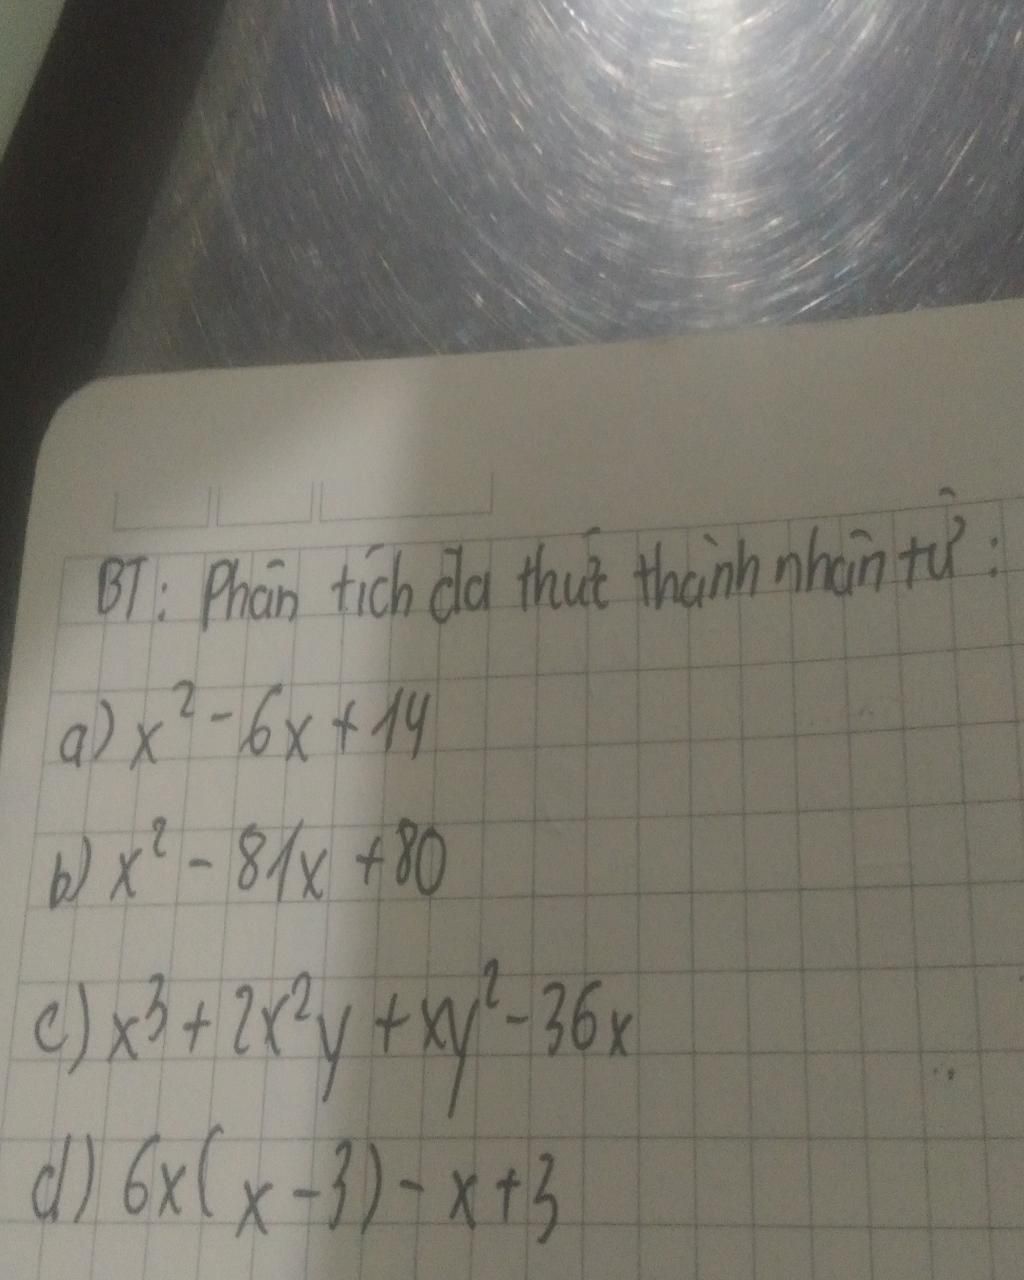 BT: Phân tích đa thức thành nhân tử:
a) x² - 6x + 14
b) x² - 81x + 80
c) x³ + 2x²y + xy² - 36x
d) 6x(x - 3) - x + 3